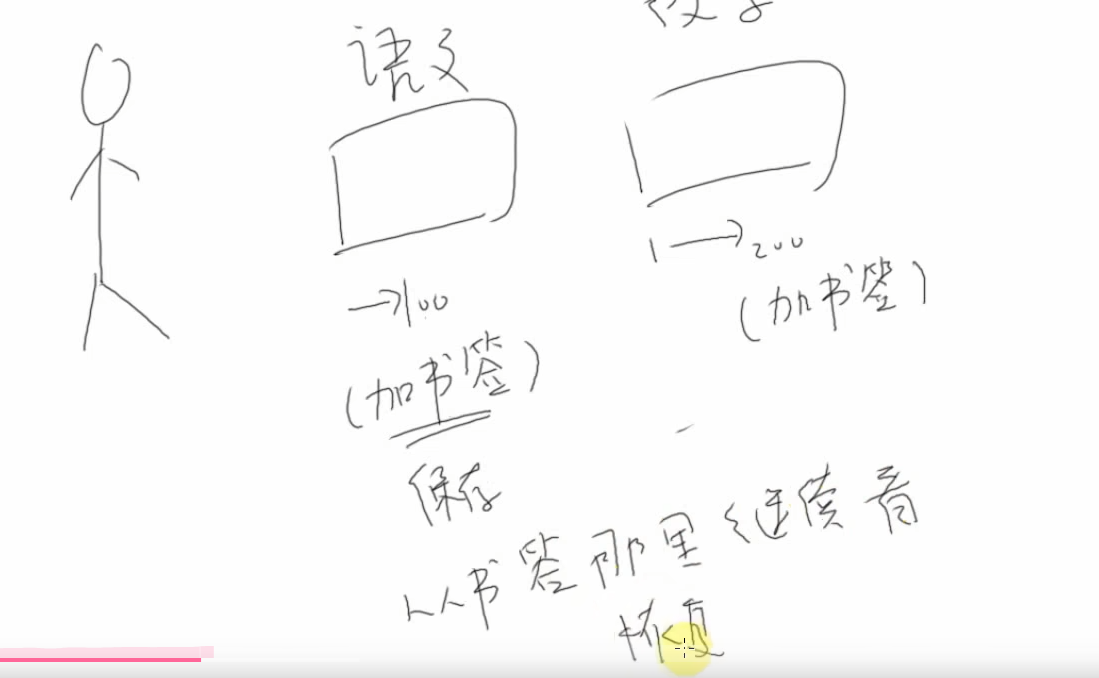 语文
→100
1→200
(加书签)
(加书签)
保存
从书签那里继续看
恢复